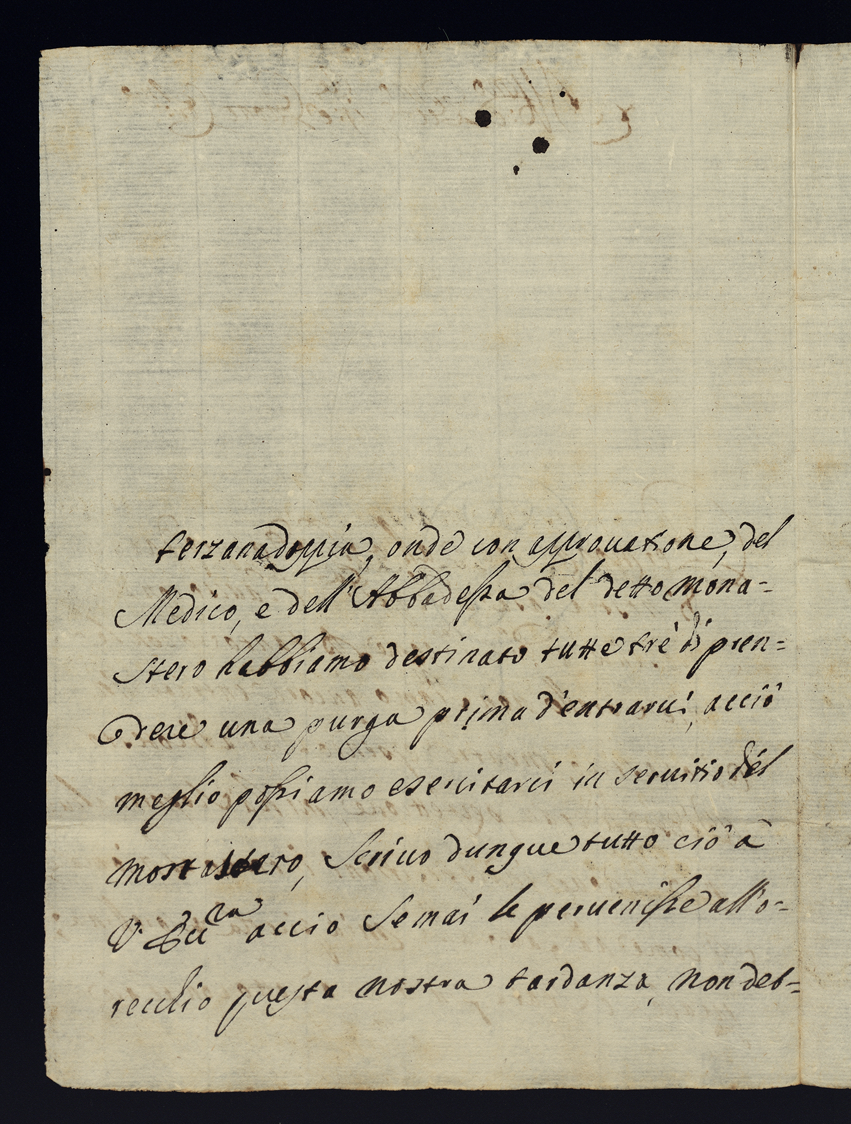 terzana doppia, onde con approuatione, del
Medico, e dell'Abbadessa del detto mona-
stero habbiamo destinato tutte trè di pren-
dere una purga prima d'entrarui, acciò
meglio possiamo esercitarci in seruitio del
monastero, Scriuo dunque tutto ciò à
V. Ecc.za accio Semai le peruenisse all'o-
recchio questa nostra tardanza, non deb-